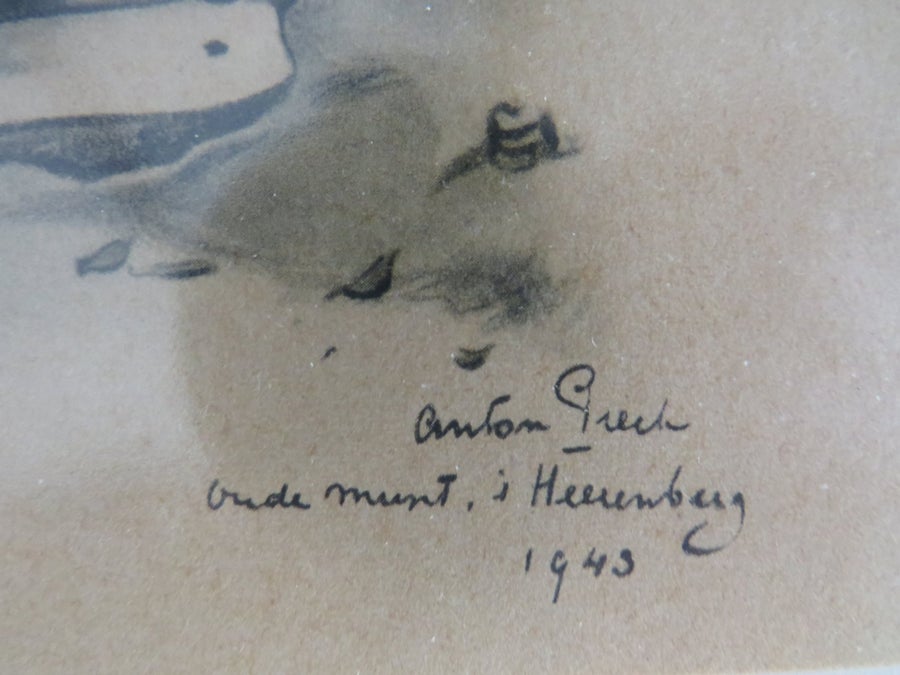 Anton Pieck
Oude munt, 's Heerenberg
1943